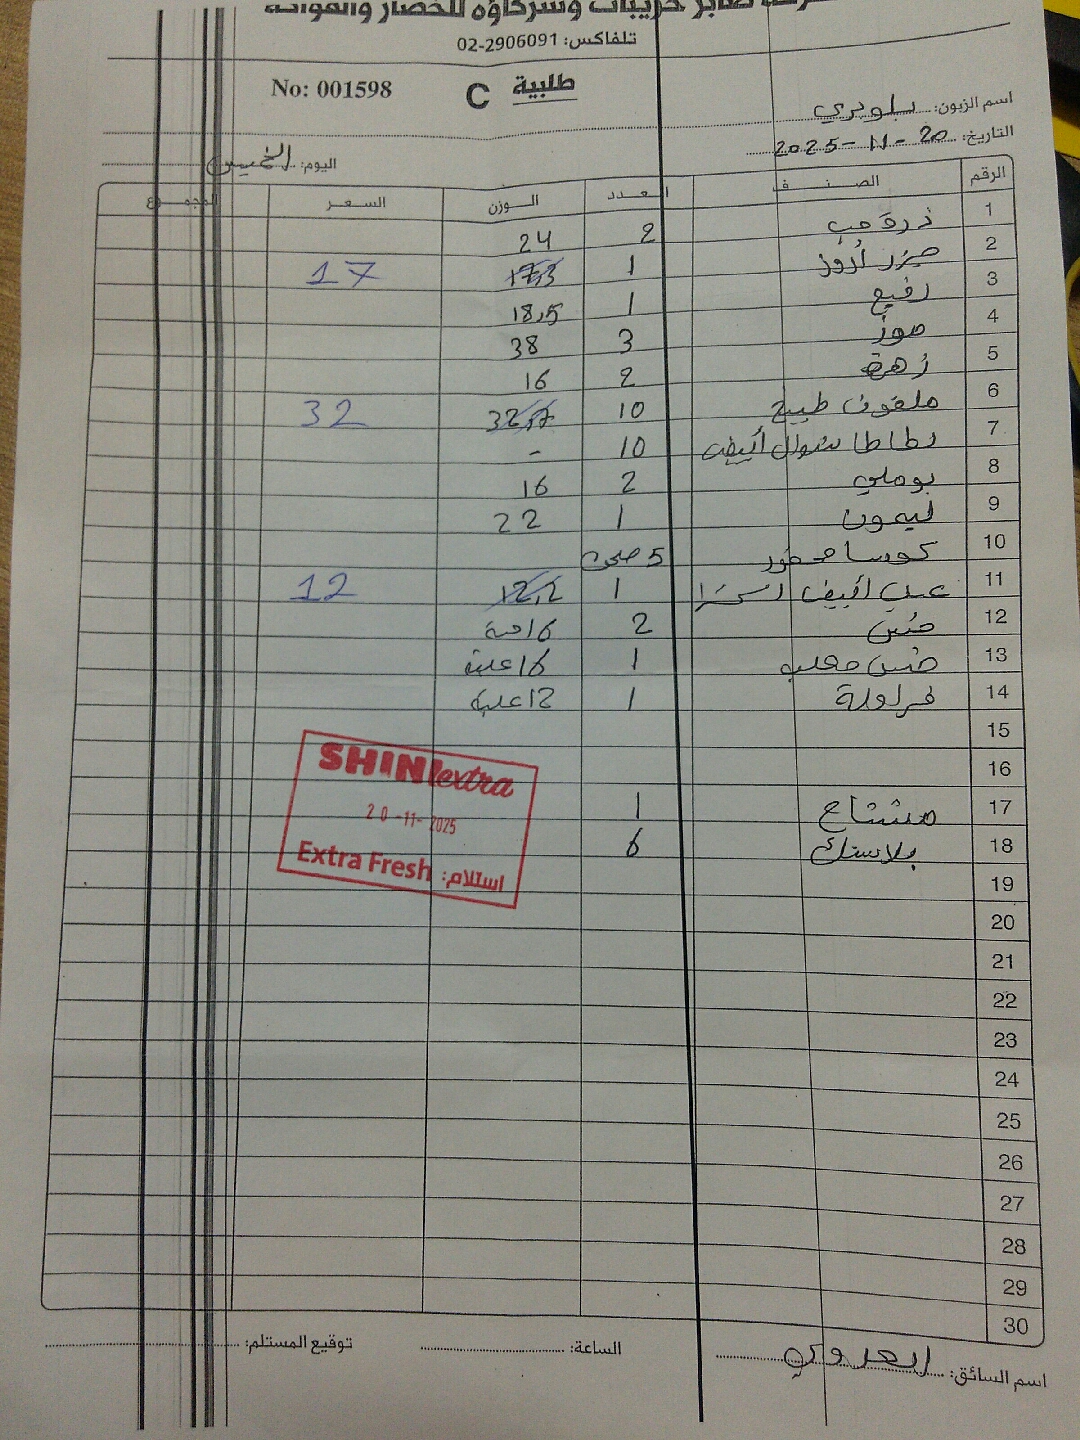 شركة صابر حريبات وشركاؤه للخضار والفواكه
تلفاكس: 02-2906091
طلبية C No: 001598
اسم الزبون:
التاريخ: 20-11-2025
اليوم: الخميس
الرقم الصنف العدد الوزن السعر المجموع
1 ذرة حب 2 24
2 جزر 1 17,3 17
3 رفيع 1 18,5
4 موز 3 38
5 زهرة 2 16
6 ملفوف طبيخ 10 32,7 32
7 بطاطا شوال أبيض 10 -
8 بوملي 2 16
9 ليمون 1 22
10 كوسا محفور 5 صحن
11 عنب أبيض 1 12,2 12
12 خس 2 16 حبة
13 خس معلب 1 16 علبة
14 فراولة 1 12 علبة
15
16
17 مشتاح 1
18 بلاستك 6
19
20
21
22
23
24
25
26
27
28
29
30
SHINI extra
20-11-2025
Extra Fresh استلام:
اسم السائق:
الساعة:
توقيع المستلم: